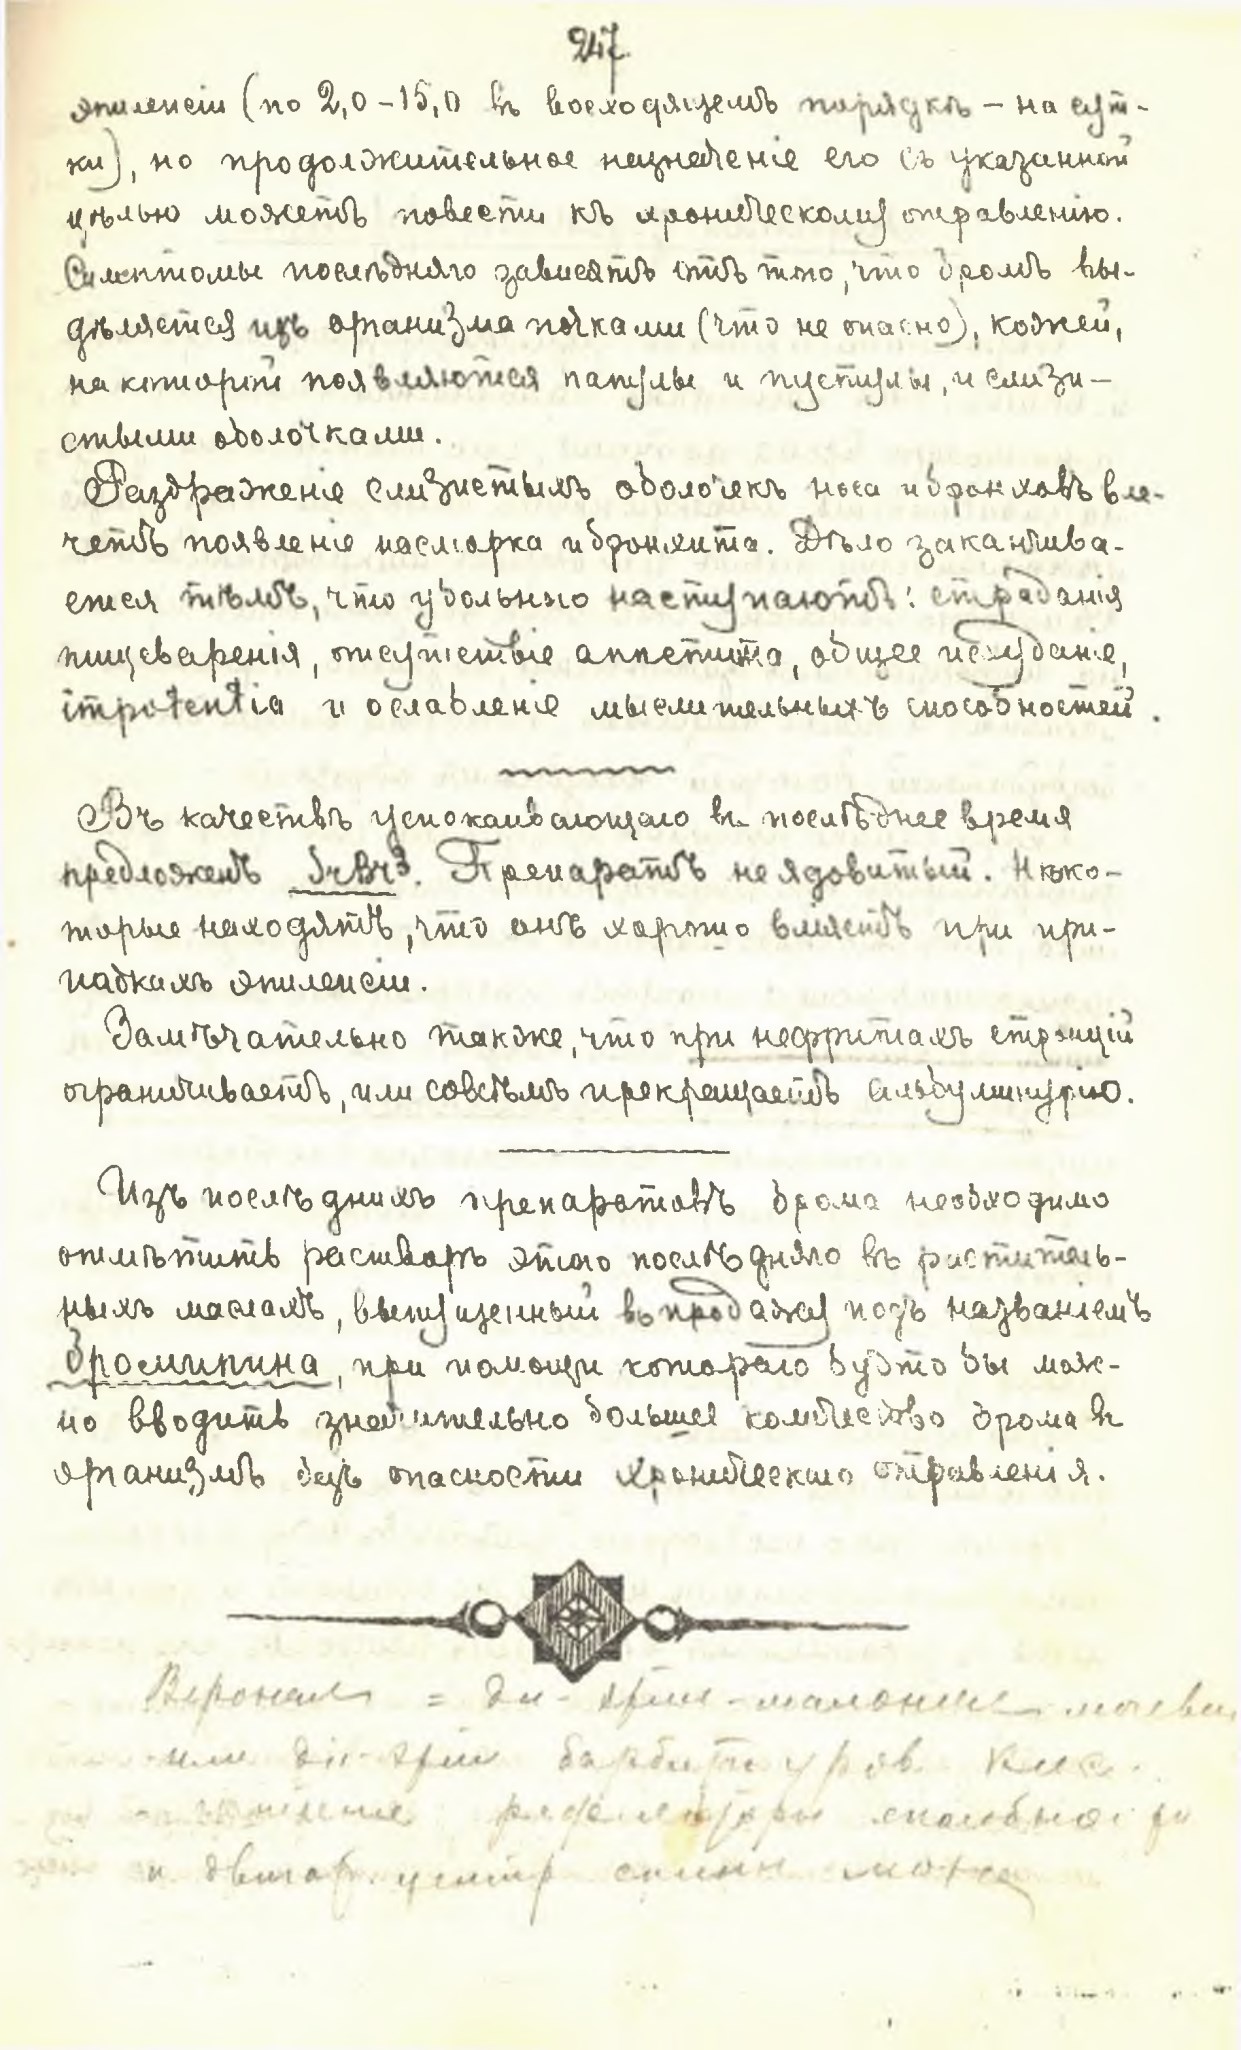 247
эпилепсіи (по 2,0-15,0 въ восходящемъ порядкѣ – на сут-
ки), но продолжительное назначеніе его съ указанной
цѣлью можетъ повести къ хроническому отравленію.
Симптомы послѣдняго зависятъ отъ того, что бромъ вы-
дѣляется изъ организма почками (что не опасно), кожей,
на которой появляются папулы и пустулы, и слизи-
стыми оболочками.
Раздраженіе слизистыхъ оболочекъ носа и бронховъ вле-
четъ появленіе насморка и бронхита. Дѣло заканчива-
ется тѣмъ, что у больного наступаютъ: страданія
пищеваренія, отсутствіе аппетита, общее исхуданіе,
impotentia и ослабленіе мыслительныхъ способностей.
Въ качествѣ успокаивающаго въ послѣднее время
предложенъ SrBr3. Препаратъ не ядовитый. Нѣко-
торые находятъ, что онъ хорошо вліяетъ при при-
падкахъ эпилепсіи.
Замѣчательно также, что при нефритахъ стронцій
ограничиваетъ, или совсѣмъ прекращаетъ альбуминурію.
Изъ послѣднихъ препаратовъ брома необходимо
отмѣтить растворъ этого послѣдняго въ раститель-
ныхъ маслахъ, выпущенный въ продажу подъ названіемъ
бромипина, при помощи котораго будто бы мож-
но вводить значительно большее количество брома въ
организмъ безъ опасности хроническаго отравленія.
Веронал = ди-этил-малонил мочеви
или ди-этил барбитуров кис.
рефлекторн способности
и двигат. центр спинн мозга